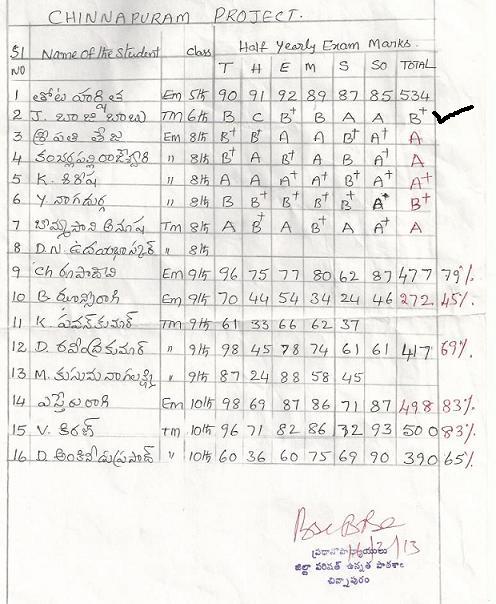 CHINNAPURAM PROJECT.
Sl NO Name of the Student class Half Yearly Exam Marks.
T H E M S So TOTAL
1 తోట హర్షిత Em 5th 90 91 92 89 87 85 534
2 J. బాజి బాబు Tm 6th B C B+ B A A B+
3 శ్రీపతి తేజ Em 8th B+ B+ A A B+ A+ A
4 Em 8th B+ A B+ A B A+ A
5 K. శిరీష " 8th A A A+ A B+ A+ A+
6 Y నాగదుర్గ " 8th B B+ B+ B+ B+ A+ B+
7 Tm 8th A B+ A B+ A A+ A
8 D.N. ఉదయభాస్కర్ " 8th
9 Ch రూపాదేవి Em 9th 96 75 77 80 62 87 477 79%
10 B. ఝాన్సీరాణి Em 9th 70 44 54 34 24 46 272 45%
11 K. పవన్ కుమార్ Tm 9th 61 33 66 62 37
12 D. రవీంద్రకుమార్ " 9th 98 45 78 74 61 61 417 69%
13 M. కుసుమ నాగలక్ష్మి " 9th 87 24 88 58 45
14 ఎస్తేరురాణి Em 10th 98 69 87 86 71 87 498 83%
15 V. కిరణ్ Tm 10th 96 71 82 86 72 93 500 83%
16 D. అంకినీడుప్రసాద్ " 10th 60 36 60 75 69 90 390 65%
ప్రధానోపాధ్యాయులు
జిల్లా పరిషత్ ఉన్నత పాఠశాల
చిన్నాపురం